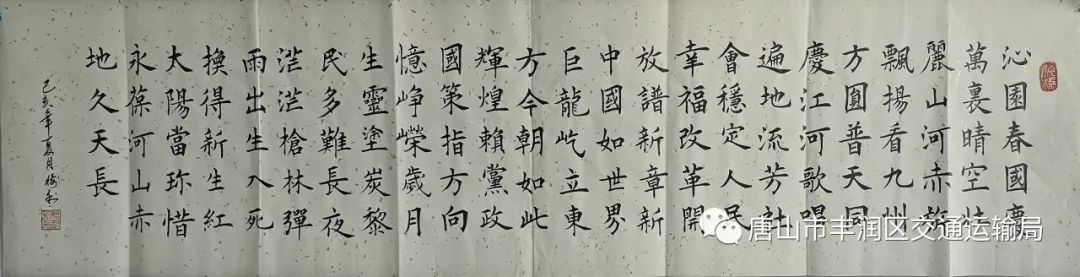 沁園春國慶
萬裏晴空壯
麗山河赤旗
飄揚看九州
方圓普天同
慶江河歌唱
遍地流芳社
會穩定人民
幸福改革開
放譜新章新
中國如世界
巨龍屹立東
方今朝如此
輝煌賴黨政
國策指方向
憶崢嶸歲月
生靈塗炭黎
民多難長夜
茫茫槍林彈
雨出生入死
換得新生紅
太陽當珎惜
永葆河山赤
地久天長
己亥年夏月
唐山市丰润区交通运输局